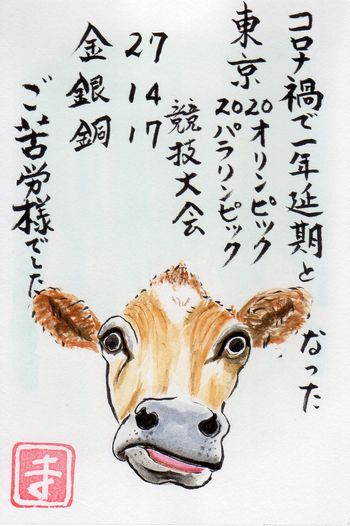 コロナ禍で一年延期となった
東京20オリンピック
20パラリンピック
競技大会
金 27
銀 14
銅 17
ご苦労様でした
ま